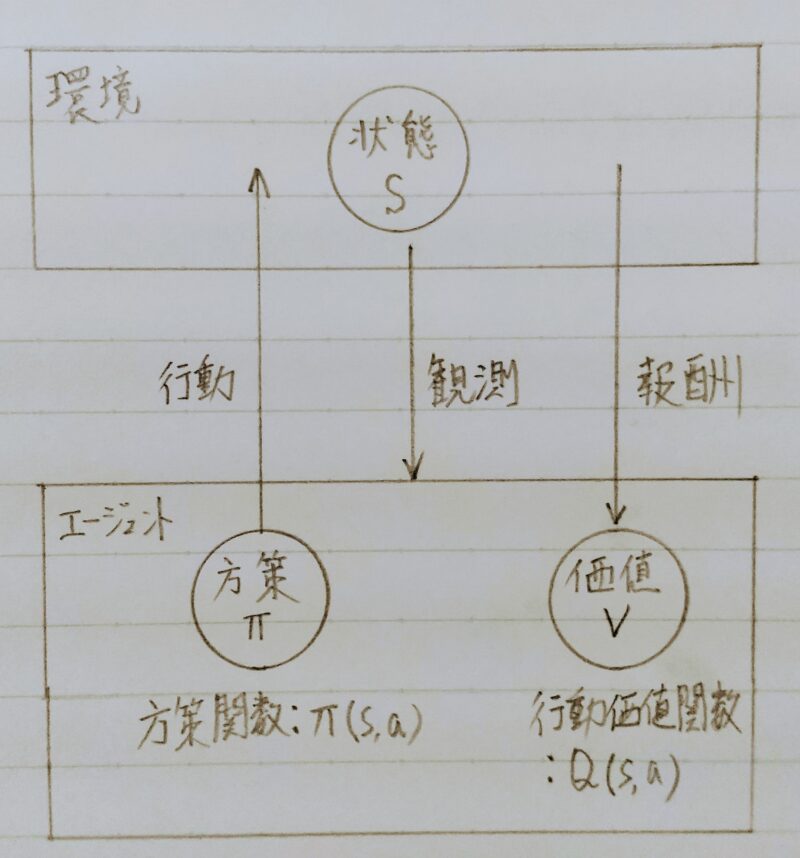 環境
状態
S
行動
観測
報酬
エージェント
方策
π
価値
V
方策関数:π(s,a)
行動価値関数
:Q(s,a)